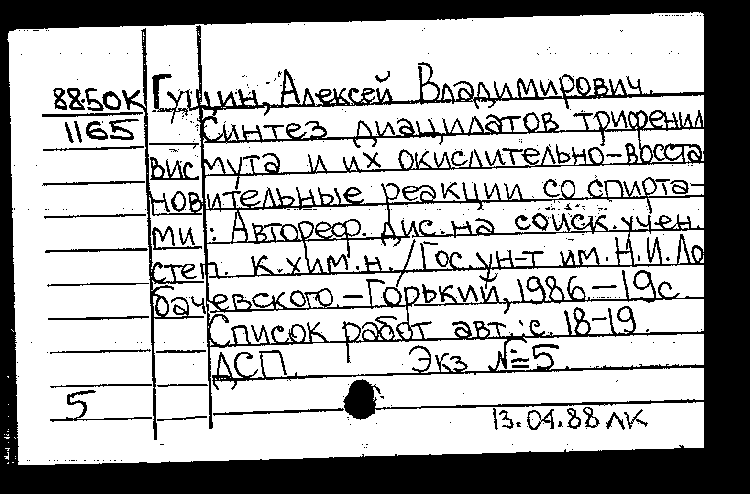 88-50К Гущин, Алексей Владимирович.
1165 Синтез диацилатов трифенил
висмута и их окислительно-восста-
новительные реакции со спирта-
ми : Автореф. дис. на соиск. учен.
степ. к.хим.н. / Гос. ун-т им. Н.И. Ло
бачевского. - Горький, 1986 - 19с.
Список работ авт.: с. 18-19.
ДСП. Экз №5.
5
13.04.88 ЛК